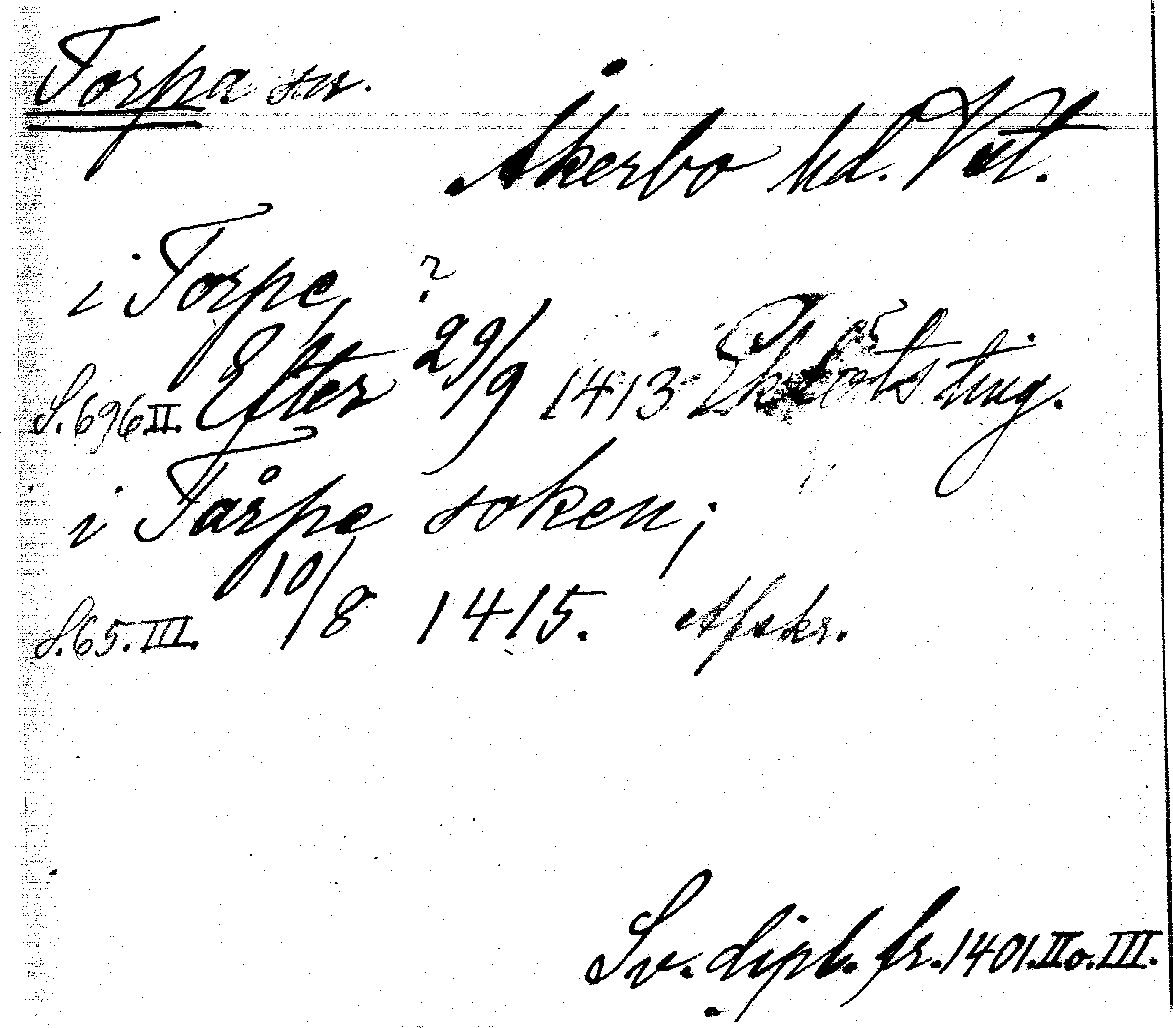 Torpa sn.
Åkerbo hd. Vst.
i Torpe ?
S. 696 II. Efter 29/9 1413 ting.
i Tårpe soken;
S. 65. III. 10/8 1415. Afskr.
Sv. dipl. fr. 1401. II o. III.